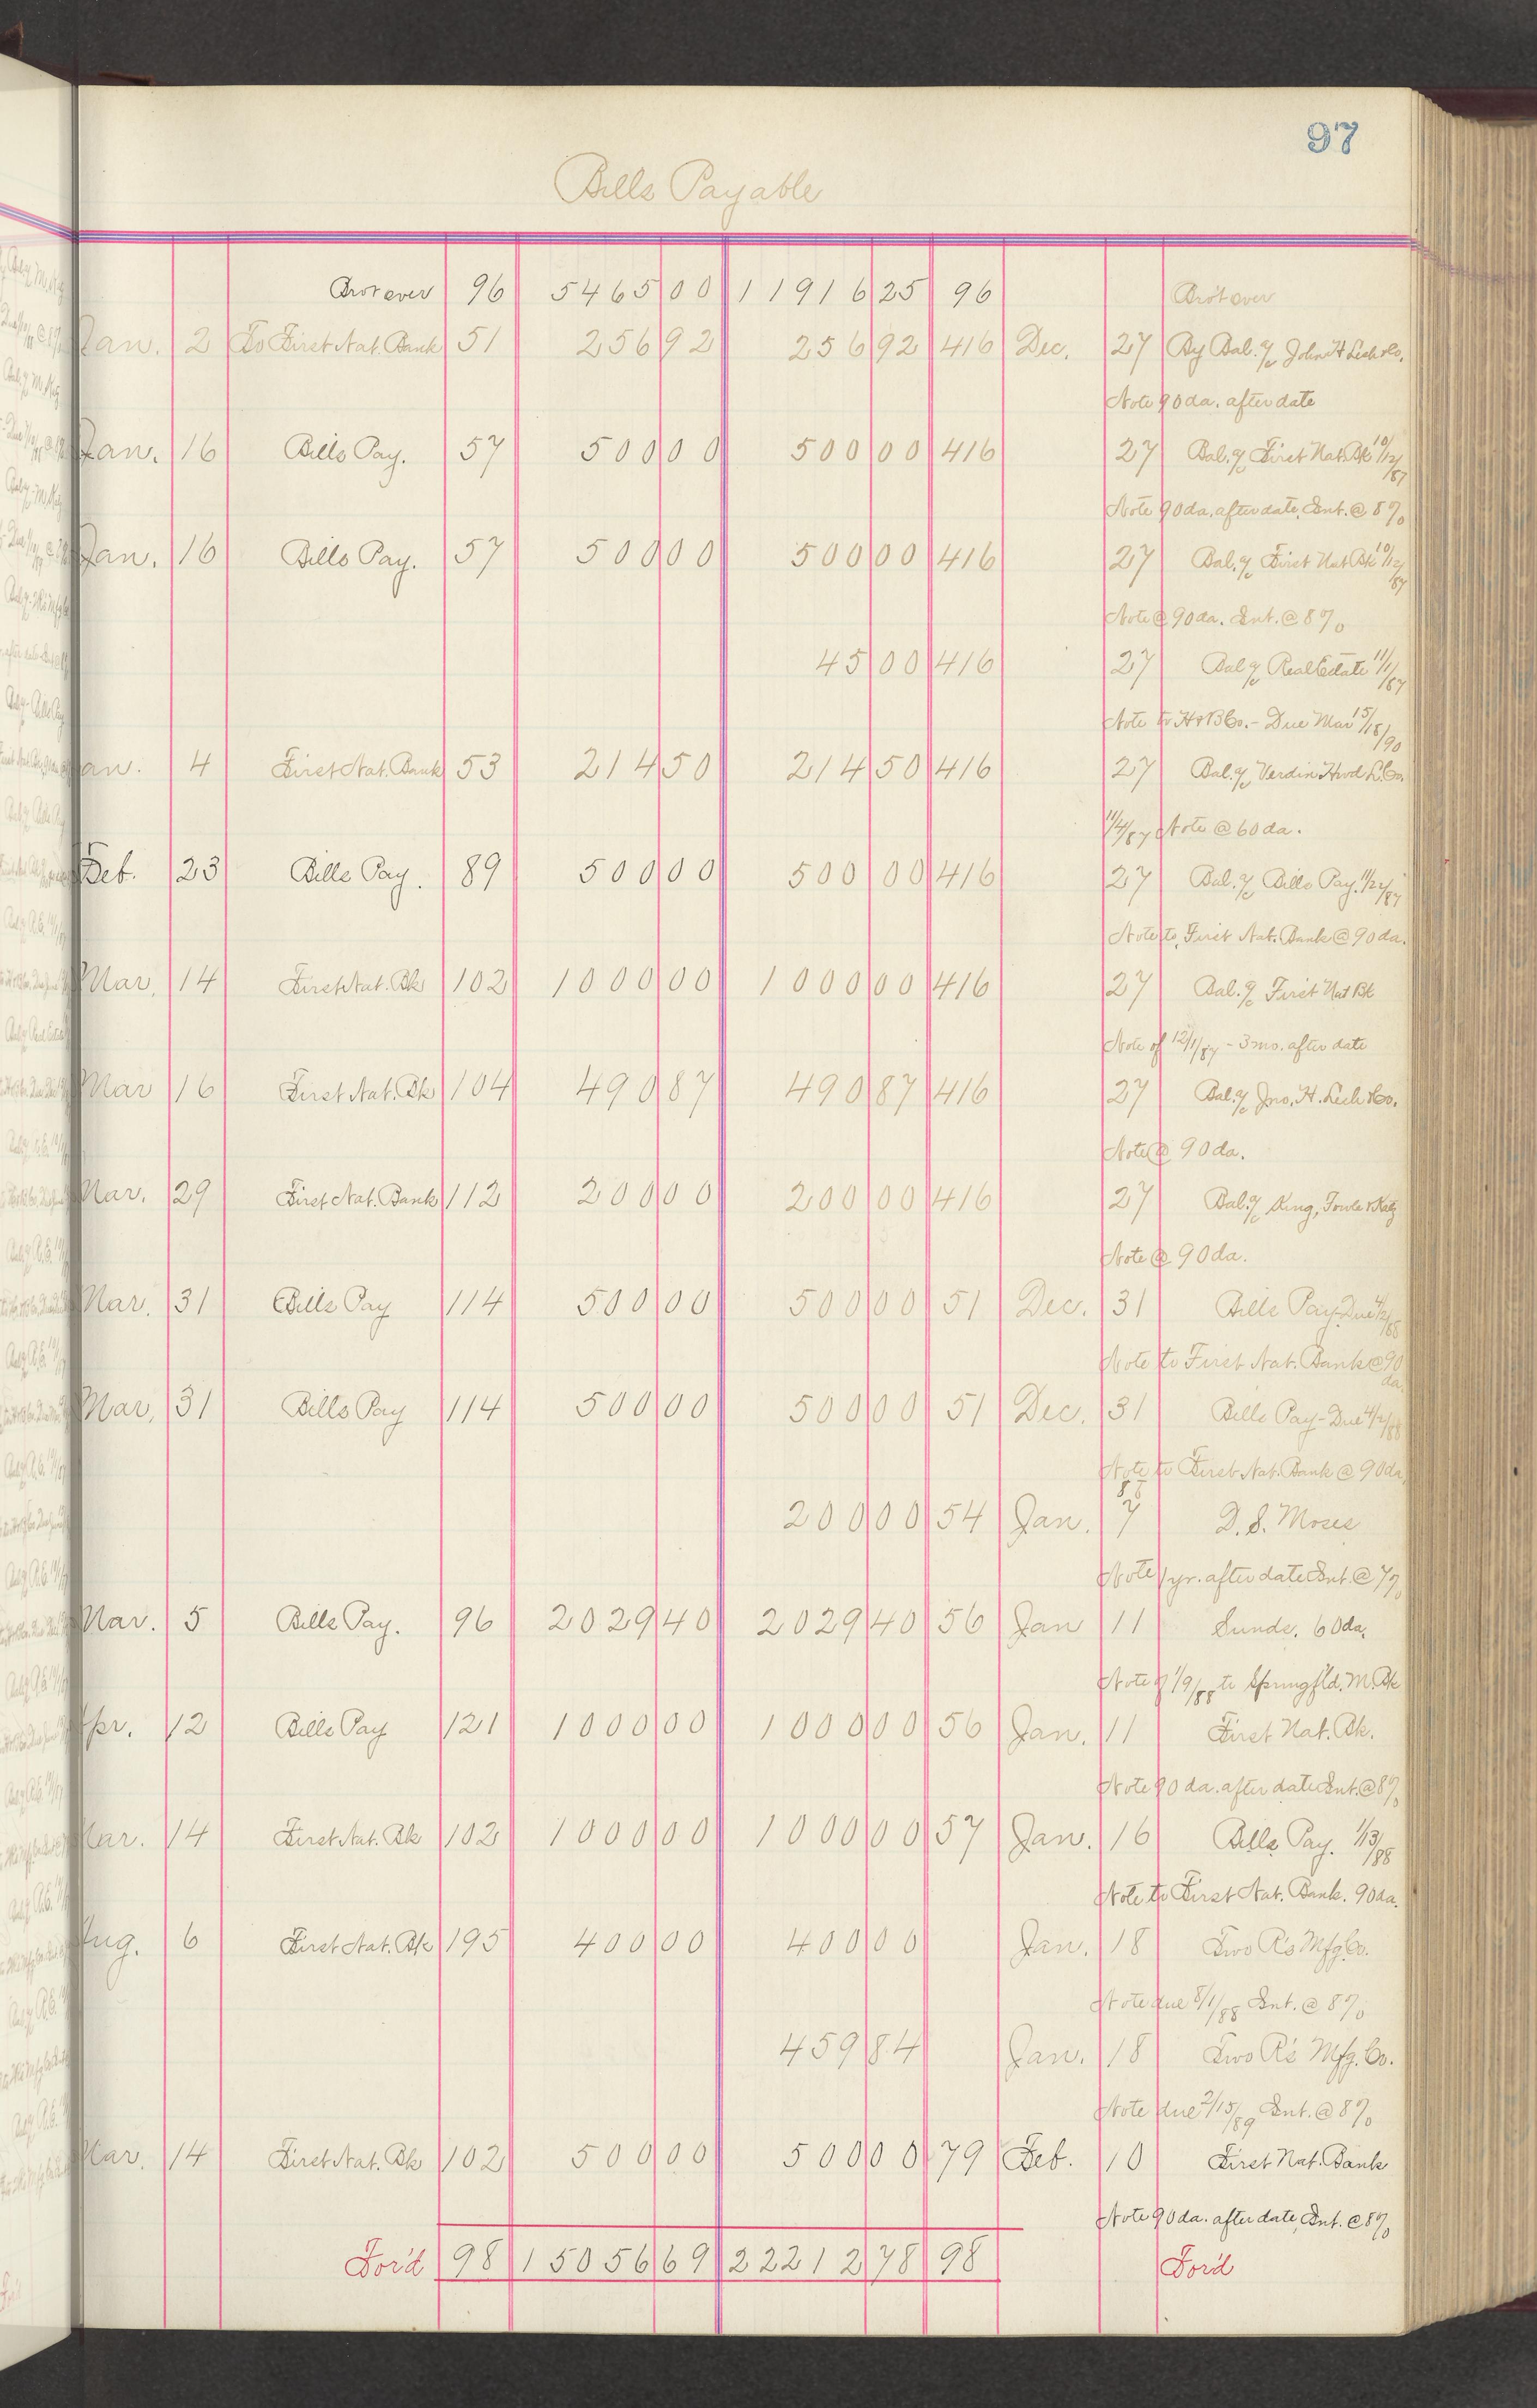 97
Bills Payable
Brot over 96 5465 00 11916 25 96 Brot over
Jan. 2 To First Nat. Bank 51 256 92 256 92 416 Dec. 27 By Bal. % John H Leih & Co.
Note 90 da. after date
Jan. 16 Bills Pay. 57 500 00 500 00 416 27 Bal. % First Nat. Bk 10/12/87
Note 90 da. after date, Int. @ 8%
Jan. 16 Bills Pay. 57 500 00 500 00 416 27 Bal. % First Nat Bk 10/12/87
Note @ 90 da. Int. @ 8%
45 00 416 27 Bal % Real Estate 11/1/87
Note to H & B Co. - Due Mar 15/18/90
Jan. 4 First Nat. Bank 53 214 50 214 50 416 27 Bal. % Verdin Hwd L. Co.
11/4/87 Note @ 60 da.
Feb. 23 Bills Pay. 89 500 00 500 00 416 27 Bal. % Bills Pay. 11/22/87
Note to First Nat. Bank @ 90 da.
Mar. 14 First Nat. Bk 102 1000 00 1000 00 416 27 Bal. % First Nat Bk
Note of 12/1/87 - 3 mo. after date
Mar 16 First Nat. Bk 104 490 87 490 87 416 27 Bal. % Jno. H. Leih & Co.
Note @ 90 da.
Mar. 29 First Nat. Bank 112 200 00 200 00 416 27 Bal. % King, Fowle &
Note @ 90 da.
Mar. 31 Bills Pay 114 500 00 500 00 51 Dec. 31 Bills Pay Due 4/2/88
Note to First Nat. Bank @ 90 da.
Mar. 31 Bills Pay 114 500 00 500 00 51 Dec. 31 Bills Pay - Due 4/2/88
Note to First Nat. Bank @ 90 da.
88
200 00 54 Jan. 7 D. S. Moses
Note 1 yr. after date Int. @ 7%
Mar. 5 Bills Pay. 96 2029 40 2029 40 56 Jan 11 Sunds. 60 da.
Note of 1/9/88 to Springf'ld. M. Bk
Apr. 12 Bills Pay 121 1000 00 1000 00 56 Jan. 11 First Nat. Bk.
Note 90 da. after date Int. @ 8%
Mar. 14 First Nat. Bk 102 1000 00 1000 00 57 Jan. 16 Bills Pay. 1/13/88
Note to First Nat. Bank. 90 da.
Aug. 6 First Nat. Bk 195 400 00 400 00 Jan. 18 Two R's Mfg. Co.
Note due 8/1/88 Int. @ 8%
459 84 Jan. 18 Two R's Mfg. Co.
Note due 2/15/89 Int. @ 8%
Mar. 14 First Nat. Bk 102 500 00 500 00 79 Feb. 10 First Nat. Bank
Note 90 da. after date, Int. @ 8%
For'd 98 15056 69 22212 78 98 For'd